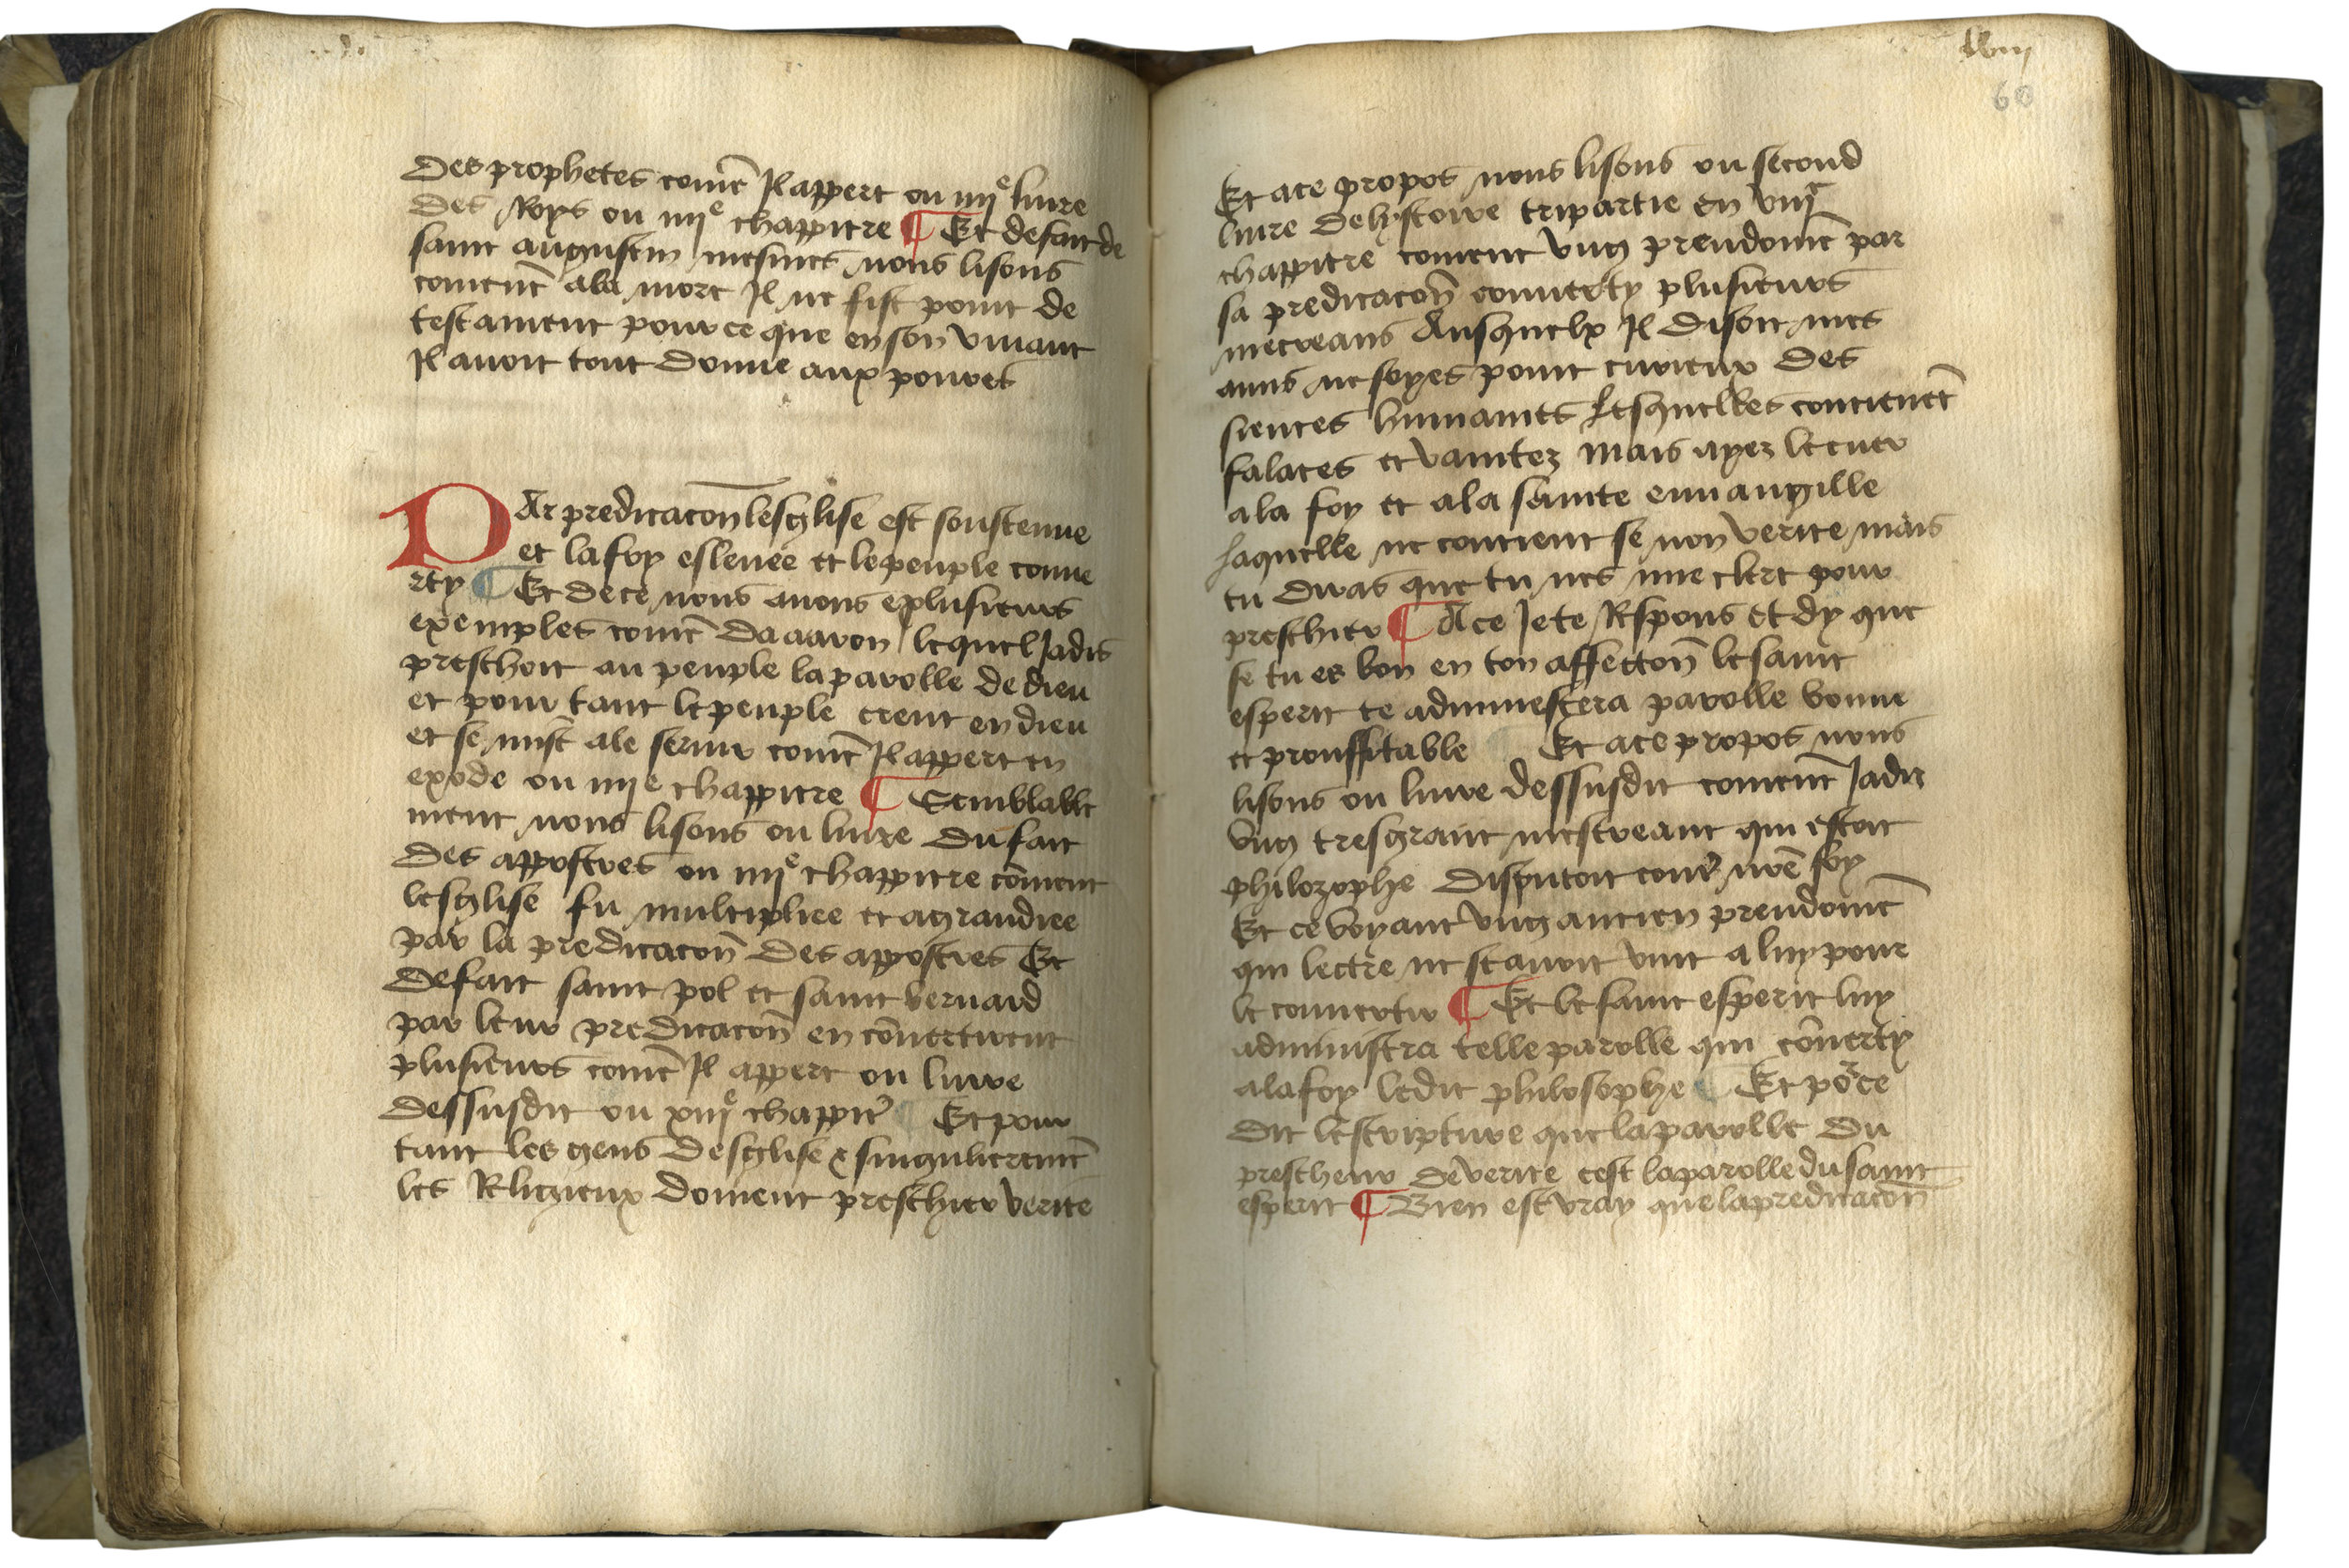 des prophetes com̄e Il appert ou iiije livre
des Roys ou iiije chappitre ¶ Et de fait de
saint augustin mesmes nous lisons
coment̄ ala mort Il ne fist point de
testament pource que en son vivant
Il avoit tout donne aux povres
PAr predicacon̄ lesglise est soustenue
et la foy eslevee et le peuple conve
rty ¶ Et de ce nous avons plusieurs
exemples com̄e da aaron lequel Jadis
preschoit au peuple la parolle de dieu
et pour tant le peuple creut en dieu
et se mist a le servir com̄e Il appert en
exode ou iiije chappitre ¶ Semblable
ment nous lisons ou livre du fait
des appostres ou iiije chappitre cōment
lesglise fu multipliee et agrandiee
par la predicacon̄ des appostres Et
de fait saint pol et saint bernard
par leur predicacon̄ en cōvertirent
plusieurs com̄e Il appert ou livre
dessusdit ou xiije chappitr̄ ¶ Et pour
tant les gens desglise & singulierem̄t
les Religieux doivent preschier verite
lviij
60
Et a ce propos nous lisons ou second
livre de lystoire tripartie en viije
chappitre coment ung preudom̄e par
sa predicacon̄ converty plusieurs
mecreans Ausquelx Il disoit mes
amis ne soyes point curieux des
siences humaines Lesquelles contienēt
falaces et vanitez mais ayez le cuer
a la foy et a la sainte euuangille
Laquelle ne contient se non verite mais
tu diras que tu nes mie clerc pour
preschier ¶ A ce Je te Respons Et dy que
se tu es bon en ton affection̄ le saint
esperit te admimestera parolle bonne
et prouffitable ¶ Et a ce propos nous
lisons ou livre dessusdit coment̄ Jadis
ung tresgrant mescreant qui estoit
philozophe disputoit contr̄ nr̄e foy
Et ce voyant ung ancien preudom̄e
qui lectre ne scavoit vint a luy pour
le convertir ¶ Et le saint esperit luy
administra telle parolle qui cōverty
a la foy ledit philosophe ¶ Et por ce
dit lescripture que la parolle du
prescheur de verite cest la parolle du saint
esperit ¶ Bien est vray que la predicacon̄